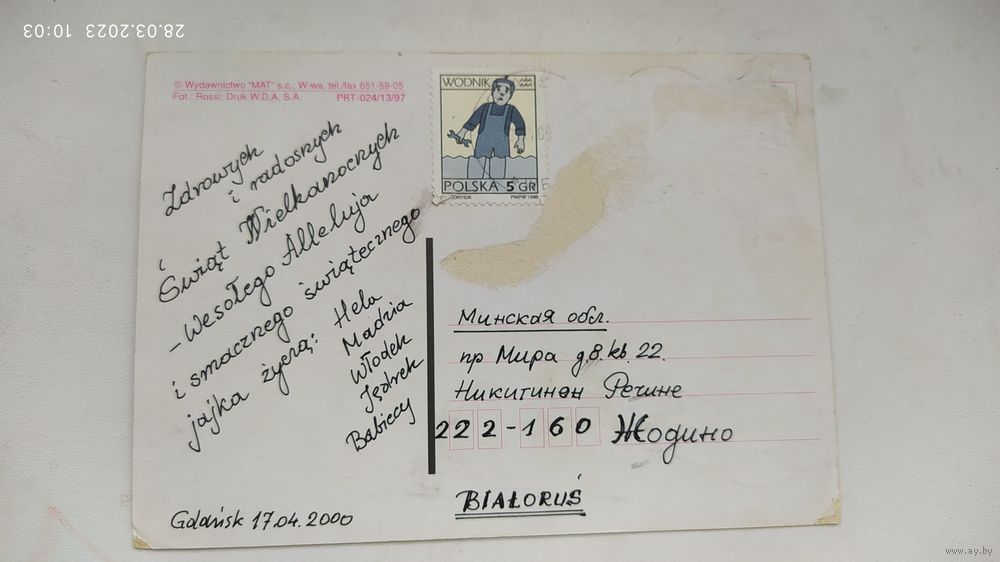 28.03.2023 10:03
© Wydawnictwo "MAT" s.c., W-wa, tel./fax 651-59-05
Fot.: Rossi; Druk W.D.A. S.A. PRT-024/13/97
WODNIK
POLSKA 5 GR
PWPW 1996
Zdrowych
i radosnych
Świąt Wielkanocnych
- Wesołego Alleluja
i smacznego świątecznego
jajka życzą: Hela
Madzia
Włodek
Jędrek
Babiccy
Gdańsk 17.04.2000
Минская обл.
пр Мира д.8. кв. 22.
Никитинен Регине
222-160 Жодино
BIAŁORUŚ
www.ay.by